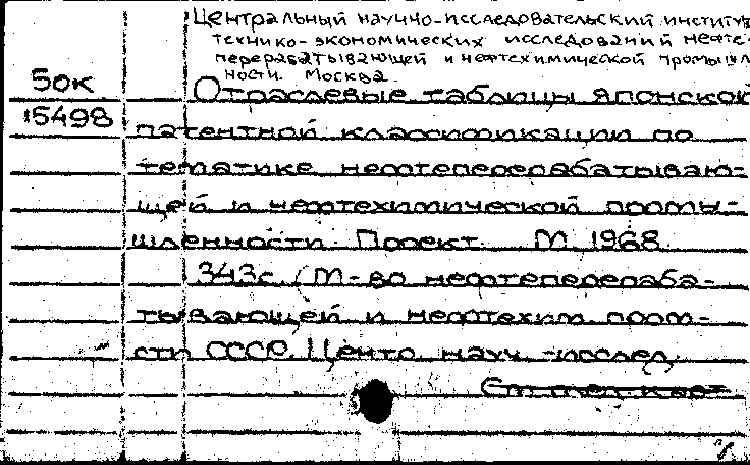 Центральный научно-исследовательский институт
технико-экономических исследований нефте-
перерабатывающей и нефтехимической промышлен
ности. Москва.
50к
15498
Отраслевые таблицы японской
патентной классификации по
тематике нефтеперерабатываю-
щей и нефтехимической промы-
шленности. Проект. М 1968.
343с. (М-во нефтеперераба-
тывающей и нефтехим. пром-
сти СССР. Центр. науч.-исслед.